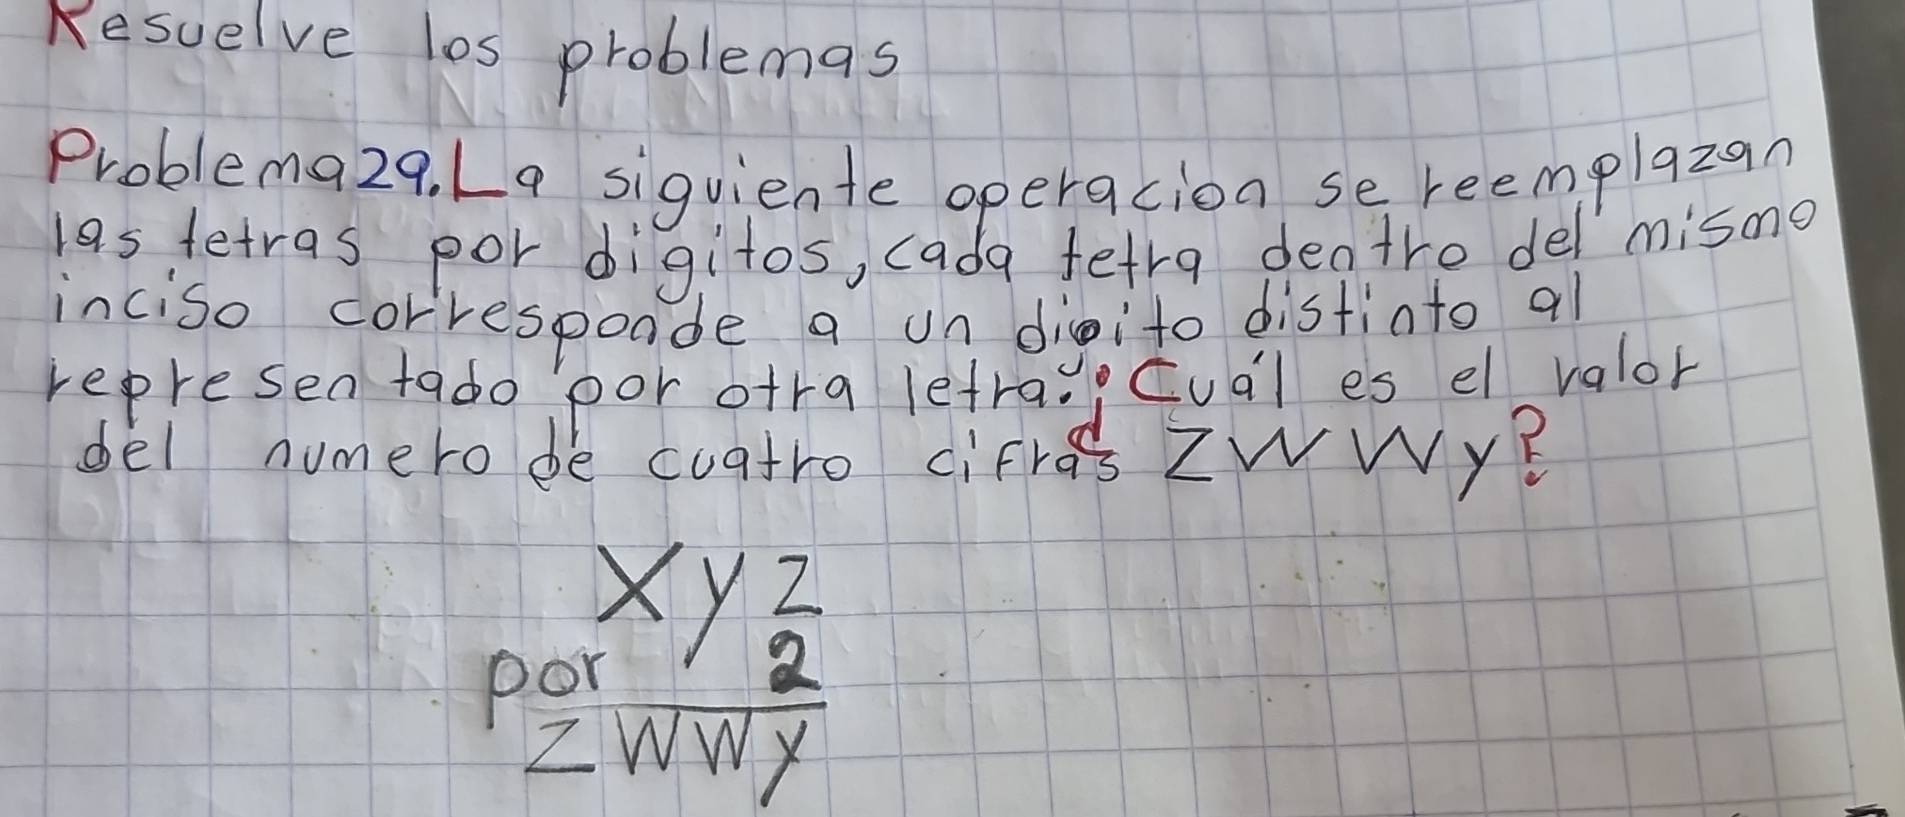 Resuelve los problemas
Problema29. La siguiente operacion se reemplazan
las tetras por digitos, cada tetra dentro del mismo
inciso corresponde a un digito distinto al
representado por otra letra. ¿Cuál es el valor
del numero de cuatro cifras ZWWy?
Xyz
por 2
ZWWy